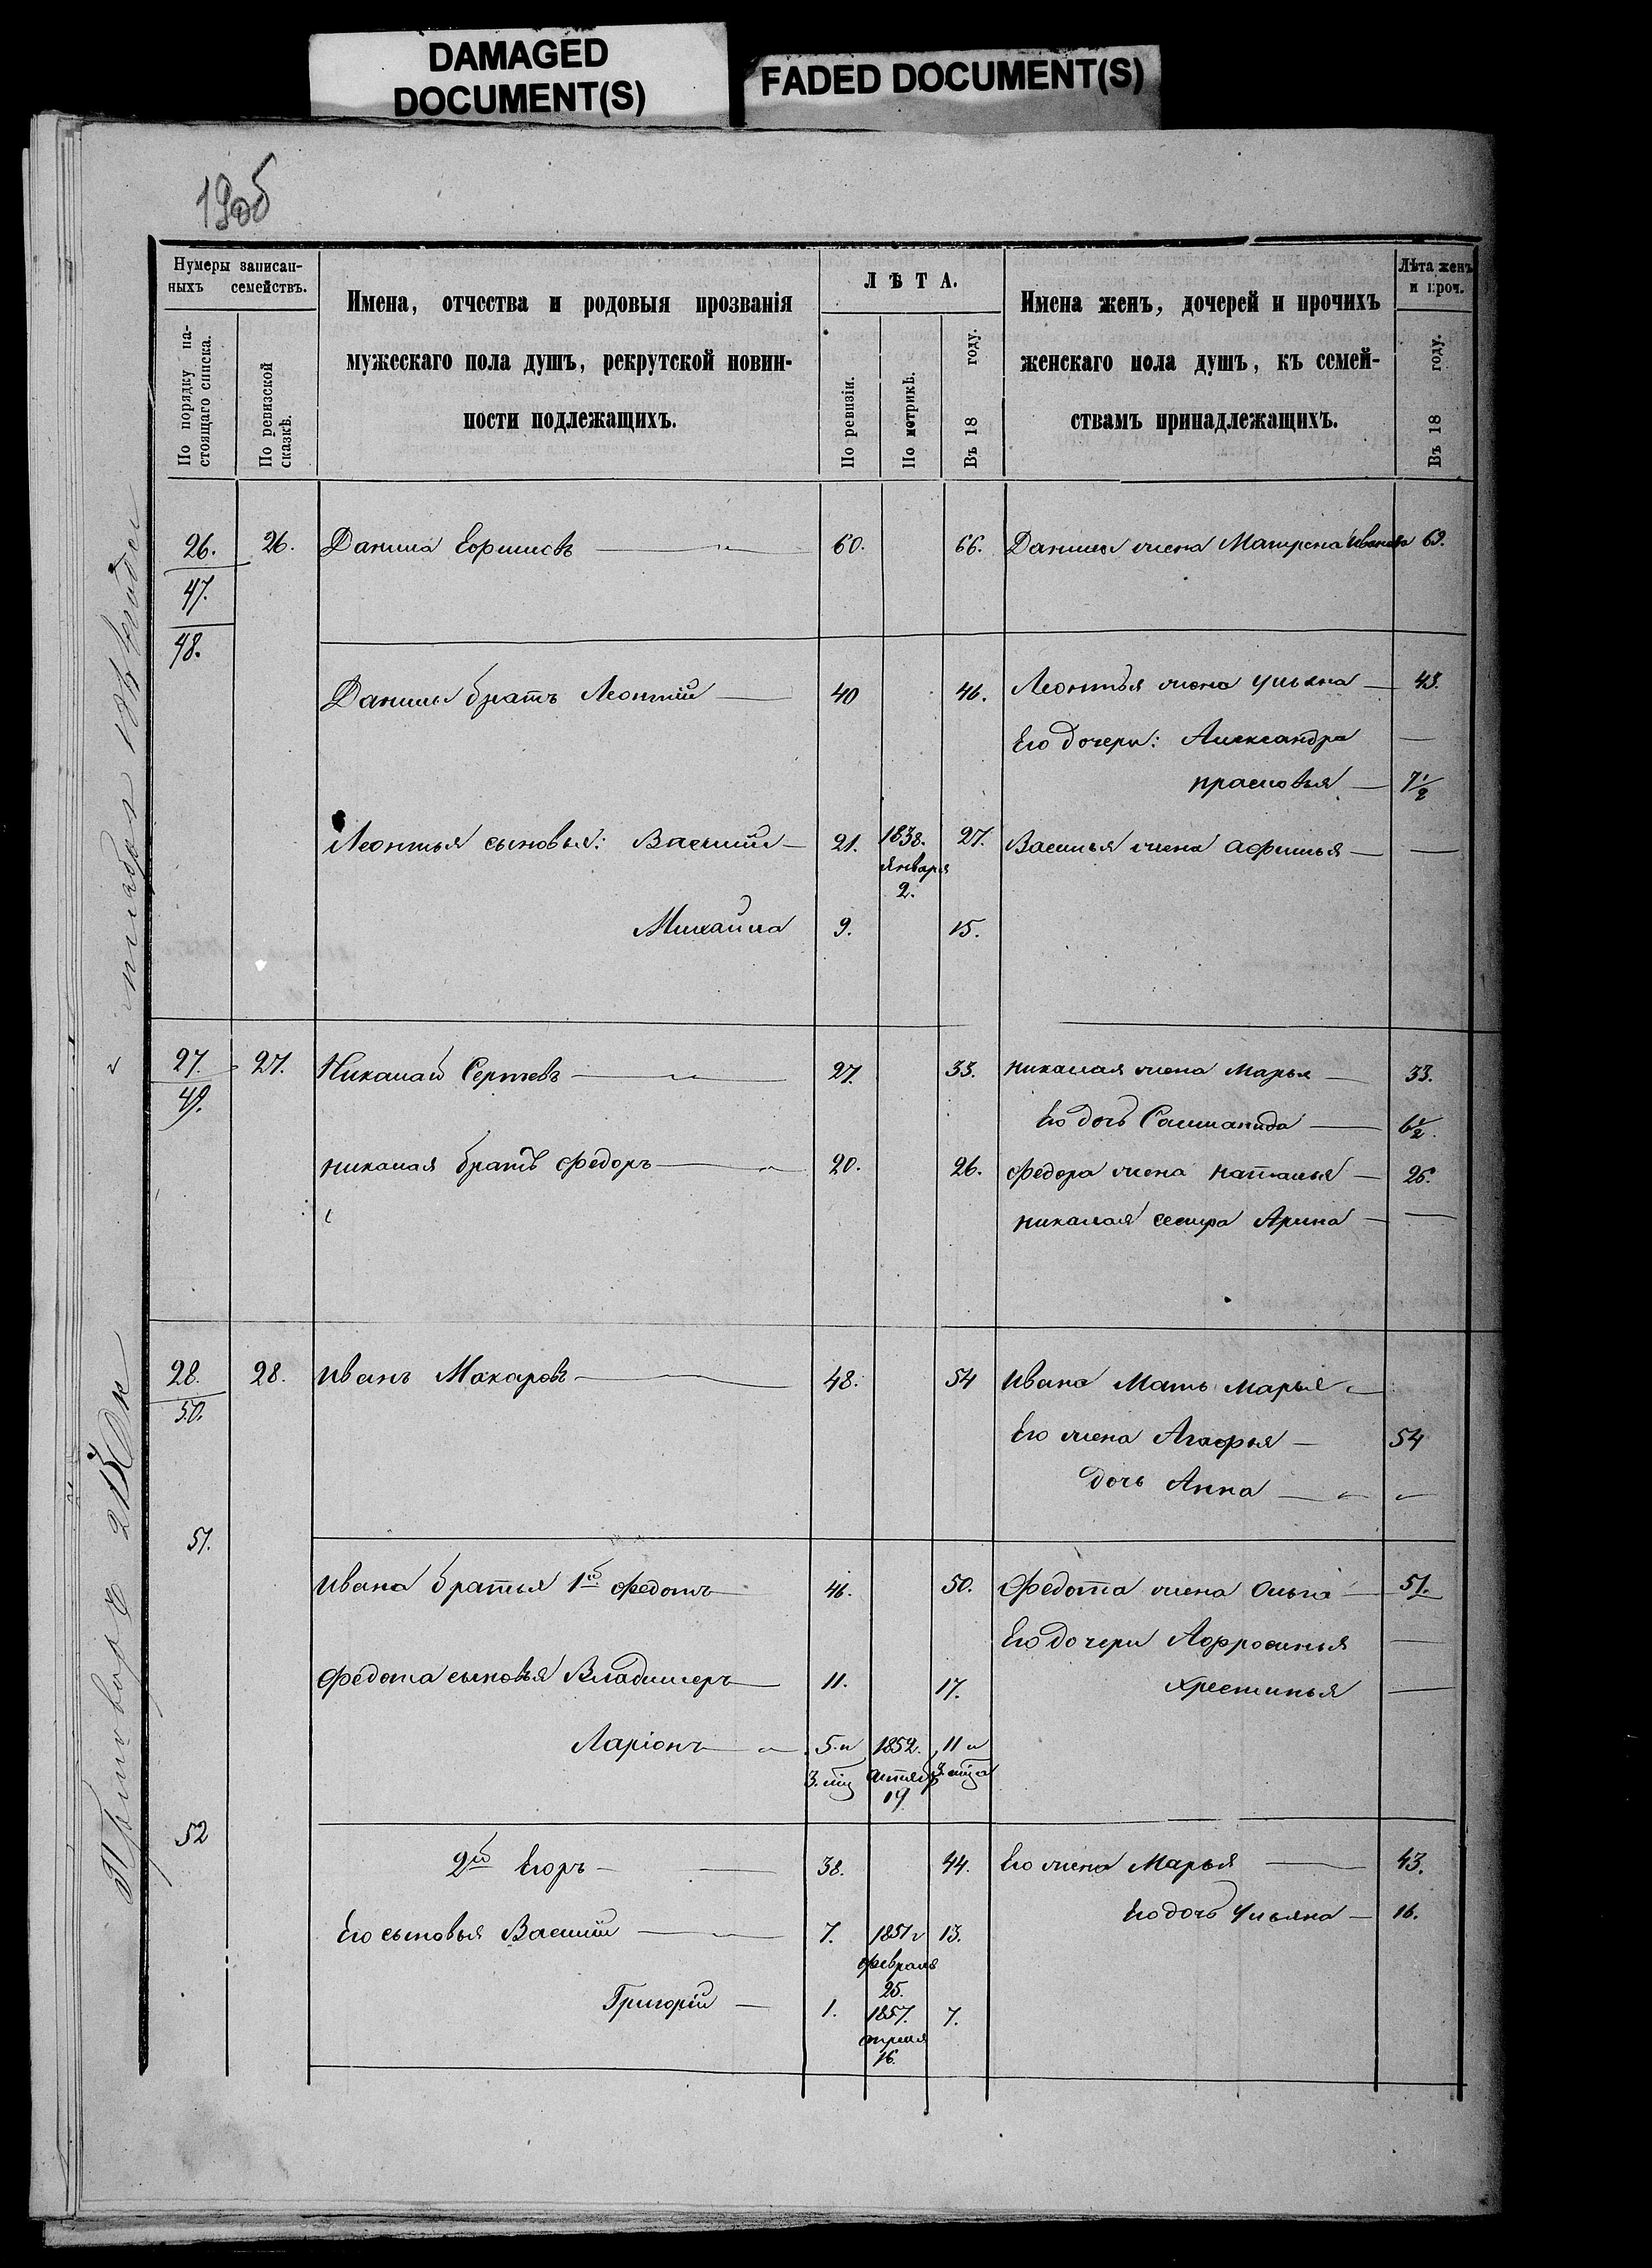 DAMAGED
DOCUMENT(S)
FADED DOCUMENT(S)
19об
Нумеры записан-
ныхъ семействъ.
По порядку на-
стоящаго списка.
По ревизской
сказкѣ.
Имена, отчества и родовыя прозванія
мужескаго пола душъ, рекрутской повин-
ности подлежащихъ.
ЛѢТА.
По ревизіи.
По метрикѣ.
Въ 18 году.
Имена женъ, дочерей и прочихъ
женскаго пола душъ, къ семей-
ствамъ принадлежащихъ.
Лѣта женъ
и проч.
Въ 18 году.
26. 26. Данила 60. 66. Данилы жена Матрена Иванова 69.
47.
48.
Данилы братъ Леонтій 40 46. Леонтья жена Ульяна 43.
Его дочери: Александра —
Прасковья — 7 1/2
Леонтья сыновья: Василій — 21. 1838. 27. Василья жена Афимья — —
Января
2.
Михайла 9. 15.
27. 27. Николай Сергѣевъ 27. 33. Николая жена Марья — 33.
49.
Его дочь Саломанида — 6 1/2.
Николая братъ Федоръ 20. 26. Федора жена Наталья — 26.
Николая сестра Арина — —
28. 28. Иванъ Макаровъ 48. 54 Ивана Мать Марья
50.
Его жена Агафья — 54
дочь Анна —
51.
Ивана братья 1й Федотъ 46. 50. Федота жена Ольга — 51.
Его дочери Афросинья —
Федота сыновья Владимеръ 11. 17. Хрестинья —
Ларіонъ 5. и 1852. 11 и
3. мѣц октяб 3. мѣца
19
52
2й Егоръ — 38. 44. Его жена Марья — 43.
Его дочь Ульяна — 16.
Его сыновья Василій 7. 1851 13.
Февраля
25.
Григорій — 1. 1857. 7.
апреля
16.